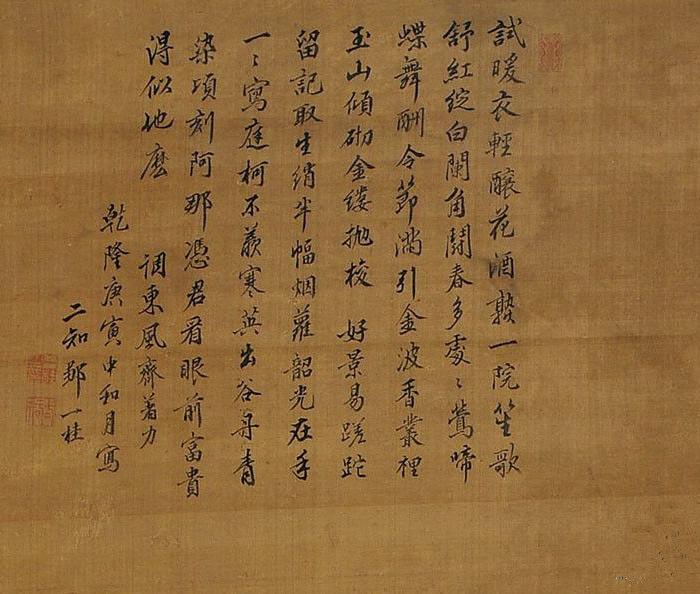 試暖衣輕釀花酒熱一院笙歌
舒紅綻白闌角鬪春多處〻鶯啼
蝶舞酬令節滿引金波香叢裡
玉山傾砌金縷拋梭 好景易蹉跎
留記取生綃半幅烟蘿韶光在手
一〻寫庭柯不羨寒英出谷尋青
染頃刻阿那憑君看眼前富貴
得似他麽
調東風齊著力
乾隆庚寅中和月寫
二知鄒一桂